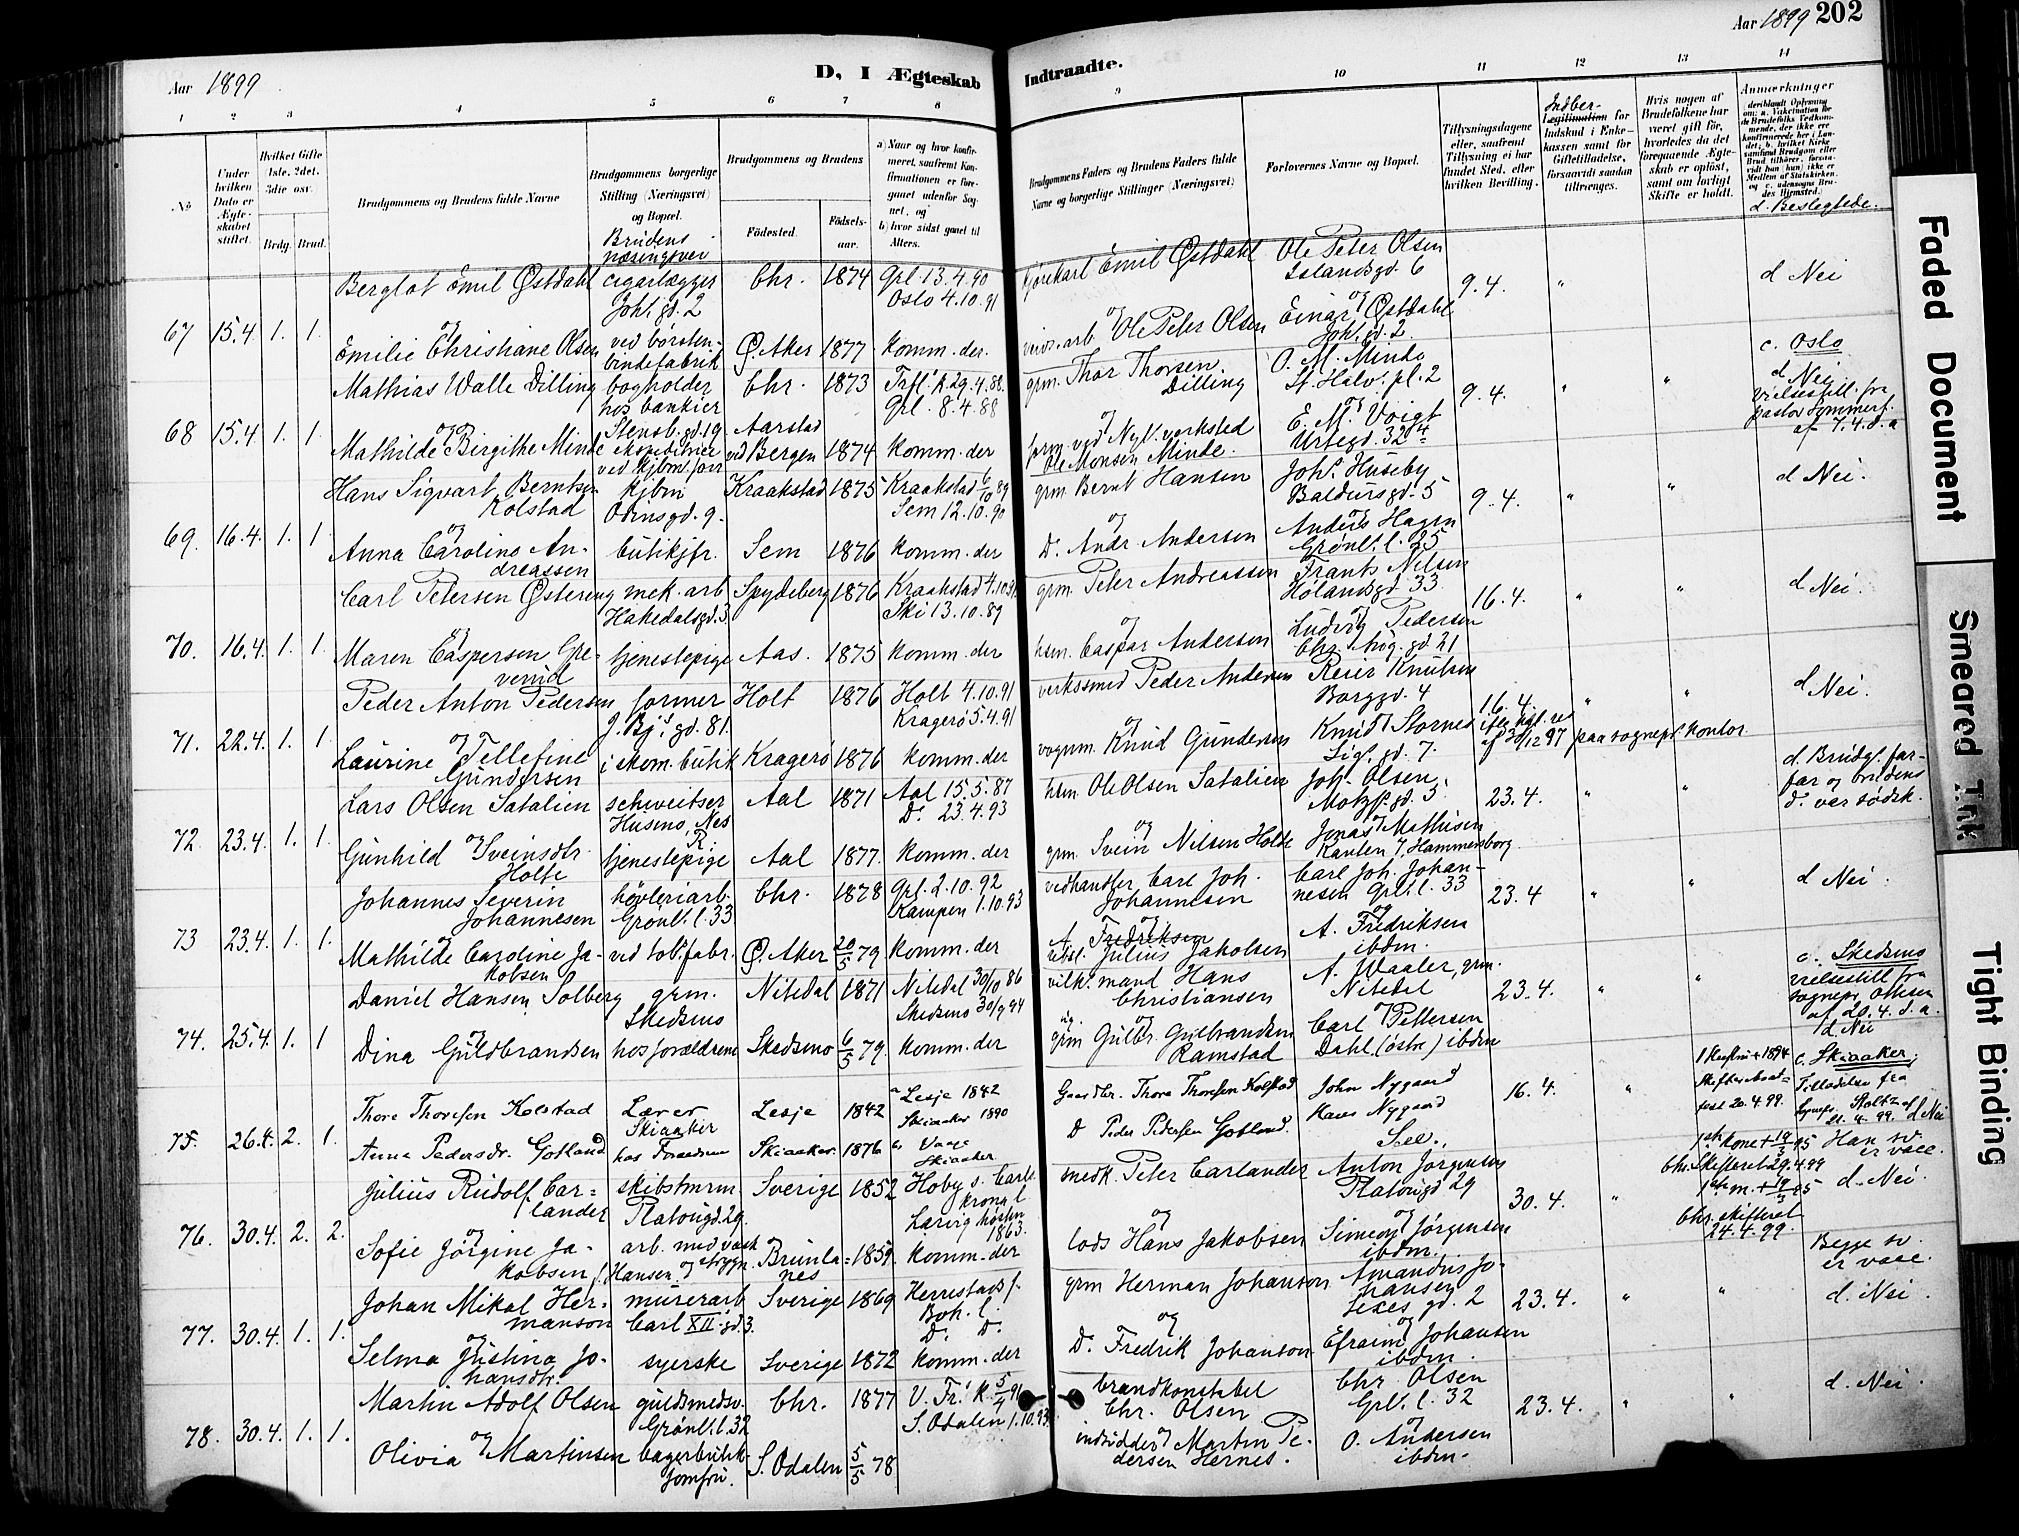 Aar 1899
D, I Ægteskab
Indtraadte.
Aar 1899 202
1 2 3 4 5 6 7 8 9 10 11 12 13 14
No
Under hvilken Dato er Ægteskabet stiftet.
Hvilket Gifte 1ste, 2det, 3die osv.
Brdg. Brud.
Brudgommens og Brudens fulde Navne
Brudgommens borgerlige Stilling (Næringsvei) og Bopæl.
Brudens næringsvei
Brudgommens og Brudens
Födested.
Födselsaar.
a) Naar og hvor konfirmeret, saafremt Konfirmationen er foregaaet udenfor Sognet, og
b) hvor sidst gaaet til Alters.
Brudgommens Faders og Brudens Faders fulde Navne og borgerlige Stillinger (Næringsvei)
Forlovernes Navne og Bopæl.
Tillysningsdagene eller, saafremt Tillysning ei har fundet Sted, efter hvilken Bevilling.
Indber-
Legitimation for Indskud i Enkekassen samt for Giftetilladelse, forsaavidt saadan tiltrænges.
Hvis nogen af Brudefolkene har været gift før, hvorledes da det foregaaende Ægteskab er oplöst, samt om lovligt Skifte er holdt.
Anmærkninger
d. Beslegtede.
67 15.4. 1. 1.
Bergtot Emil Østdahl cigarlægger Joh. gd. 2 Chr. 1874 Grl. 13.4.90 Oslo 4.10.91
kjørekarl Emil Østdahl Ole Peter Olsen Islandsgd. 6 9.4. " d Nei
og
Emilie Christiane Olsen ved børstenbindefabrik Ø. Aker 1877 komm. der.
veivs. arb. Ole Peter Olsen Einar Østdahl Joh. gd. 2.
c. Oslo
68 15.4. 1. 1
Mathias Walle Dilling bogholder hos bankier Stensb. gd. 19 Chr. 1873 Trfl. k. 29.4.88. Grl. 8.4.88
grm. Thor Thorsen Dilling O. M. Minde St. Halv. pl. 2 9.4. " " d Nei
vielsestill. fra pastor Sommerf. af 7.4. d. a
og
Mathilde Birgithe Minde ekspeditrice ved kjbm. forr Aarstad ved Bergen 1874 komm. der
form. ved Nyl. verksted Ole Monsen Minde. E. M. Voigt Urtegd. 32
69. 16.4. 1. 1
Hans Sigvart Berntsen Kolstad kjbm Odinsgd. 9. Kraakstad 1875 Kraakstad 6/10 89 Sem 12.10.90
grm Bernt Hansen Joh. Huseby Baldursgd. 5 9.4. " " d Nei.
og
Anna Caroline Andreassen butikjfr. Sem 1876 komm. der
D. Andr Andersen Anders Hagen Grønl. l. 25
70. 16.4. 1. 1
Carl Petersen Østereng mek. arb Hakedalsgd. 3 Spydeberg 1876 Kraakstad 4.10.91 Ski 13.10.89
grm. Peter Andreassen Frants Nilsen Hølandsgd. 33 16.4. " " d Nei.
og
Maren Caspersen Grevenud tjenestepige Aas. 1875 komm. der
hsm. Caspar Andersen Ludvig Pedersen Chr. Krog. gd 21
71. 22.4. 1. 1
Peder Anton Pedersen former J. Bj. gd. 81. Holt 1876 Holt 4.10.91 Kragerø 5.4.91
verkssmed Peder Andersen Reier Knutsen Borggd. 4 16.4. " " d Nei.
og
Laurine Tellefine Gundersen i skom. butik Kragerø 1876 komm. der
vognm. Knud Gundersen Knud Stornes Sig. gd. 7. af 30/12 97 paa sognepr. kontor
72. 23.4. 1. 1
Lars Olsen Sataliен schweitser Husmo, Nes R. Aal 1871 Aal 15.5.87 D. 23.4.93
hsm. Ole Olsen Satalien Joh. Olsen, Motzf. gd. 5 23.4. " " d. Brudg. farfar og brudens d. var sødsk.
og
Gunhild Sveinsdtr. Holte tjenestepige Aal 1877. komm. der
grm. Svein Nilsen Holte Jonas Mathisen Kanten 7, Hammersborg
73 23.4. 1. 1.
Johannes Severin Johannesen høvleriarb. Grønl. l. 33 Chr. 1878 Grl. 2.10.92 Kampen 1.10.93
vedhandler Carl Joh. Johannesen Carl Joh. Johannesen Grl. l. 33 23.4 " " d Nei.
og
Mathilde Caroline Jakobsen ved tob. fabr. Ø. Aker 20/5 79 komm. der
A. Fredriksen Julius Jakobsen A. Fredriksen ibdm.
74. 25.4. 1. 1
Daniel Hansen Solberg grm. Skedsmo Nitedal 1871 Nitedal 30/10 86 Skedsmo 30/9 94
vilk. mand Hans Christiansen A. Waaler, grm. Nitedal 23.4. " " c. Skedsmo
vielsestill fra sognepr. Ottesen af 20.4. d. a. d Nei
og
Dina Guldbrandsen hos forældrene Skedsmo 6/5 79. komm. der
grm Gulbr. Gulbrandsen Ramstad Carl Pettersen Dahl (østre) ibdm
75. 26.4. 2. 1.
Thore Thoresen Kolstad Lærer Skiaaker Lesje 1842 a Lesje 1842 Skiaaker 1890
Gaardbr. Thore Thoresen Kolstad John Nygaard 16.4. " 1 Hustru + 1894 Skifte attest 20.4.99. c. Skiaaker.
Tilladelse fra Sognepr. Stoltz af 21.4.99. d Nei
Anna Pedersdr. Gotland hos Foreldrene Skiaaker. 1876 Vaage Skiaaker
D Peder Pedersen Gotland. Hans Nygaard
76. 30.4. 2. 2.
Julius Rudolf Carlander skibstmrm. Platougd. 29. Sverige 1852 Hoby s. Carlskrona l
medk. Peter Carlander Anton Jørgensen Platougd 29 30.4. " 1ste kone + 19/3 95 Chr. Skifteret 29.4.99 Han sv. er vacc. d. Nei.
og
Sofie Jørgine Jakobsen f. Hansen arb. med vask og strygn. Brunlanes 1859. Larvig høsten 1863. komm. der
lods Hans Jakobsen Simeon Jørgensen ibdm. 1ste m. + 19/3 85 Chr. skifteret 24.4.99.
Begge sv. er vacc.
77. 30.4. 1. 1.
Johan Mikal Hermanson murerarb Carl XII. gd. 3. Sverige 1869 Herrestads s. Boh. l. D. D.
grm Herman Johanson Amandus Johansen Sexes gd. 2 23.4. " " d. Nei.
og
Selma Justina Johansdtr. syerske Sverige 1872 komm. der
D. Fredrik Johanson Efraim Johansen ibdm.
78. 30.4. 1. 1.
Martin Adolf Olsen guldsmedsv. Grønl. l. 32 Chr. 1877 V. Fr. k. 5/4 91 S. Odalen 1.10.93
brandkonstabel Chr. Olsen Chr Olsen Grl. l. 32 23.4. " " d. Nei.
og
Olivia Martinsen bagerbutik-jomfru. S. Odalen 5/5 78
indsidder Martin Pedersen Hernes. O. Andersen ibdm.
Faded Document
Smeared Ink
Tight Binding